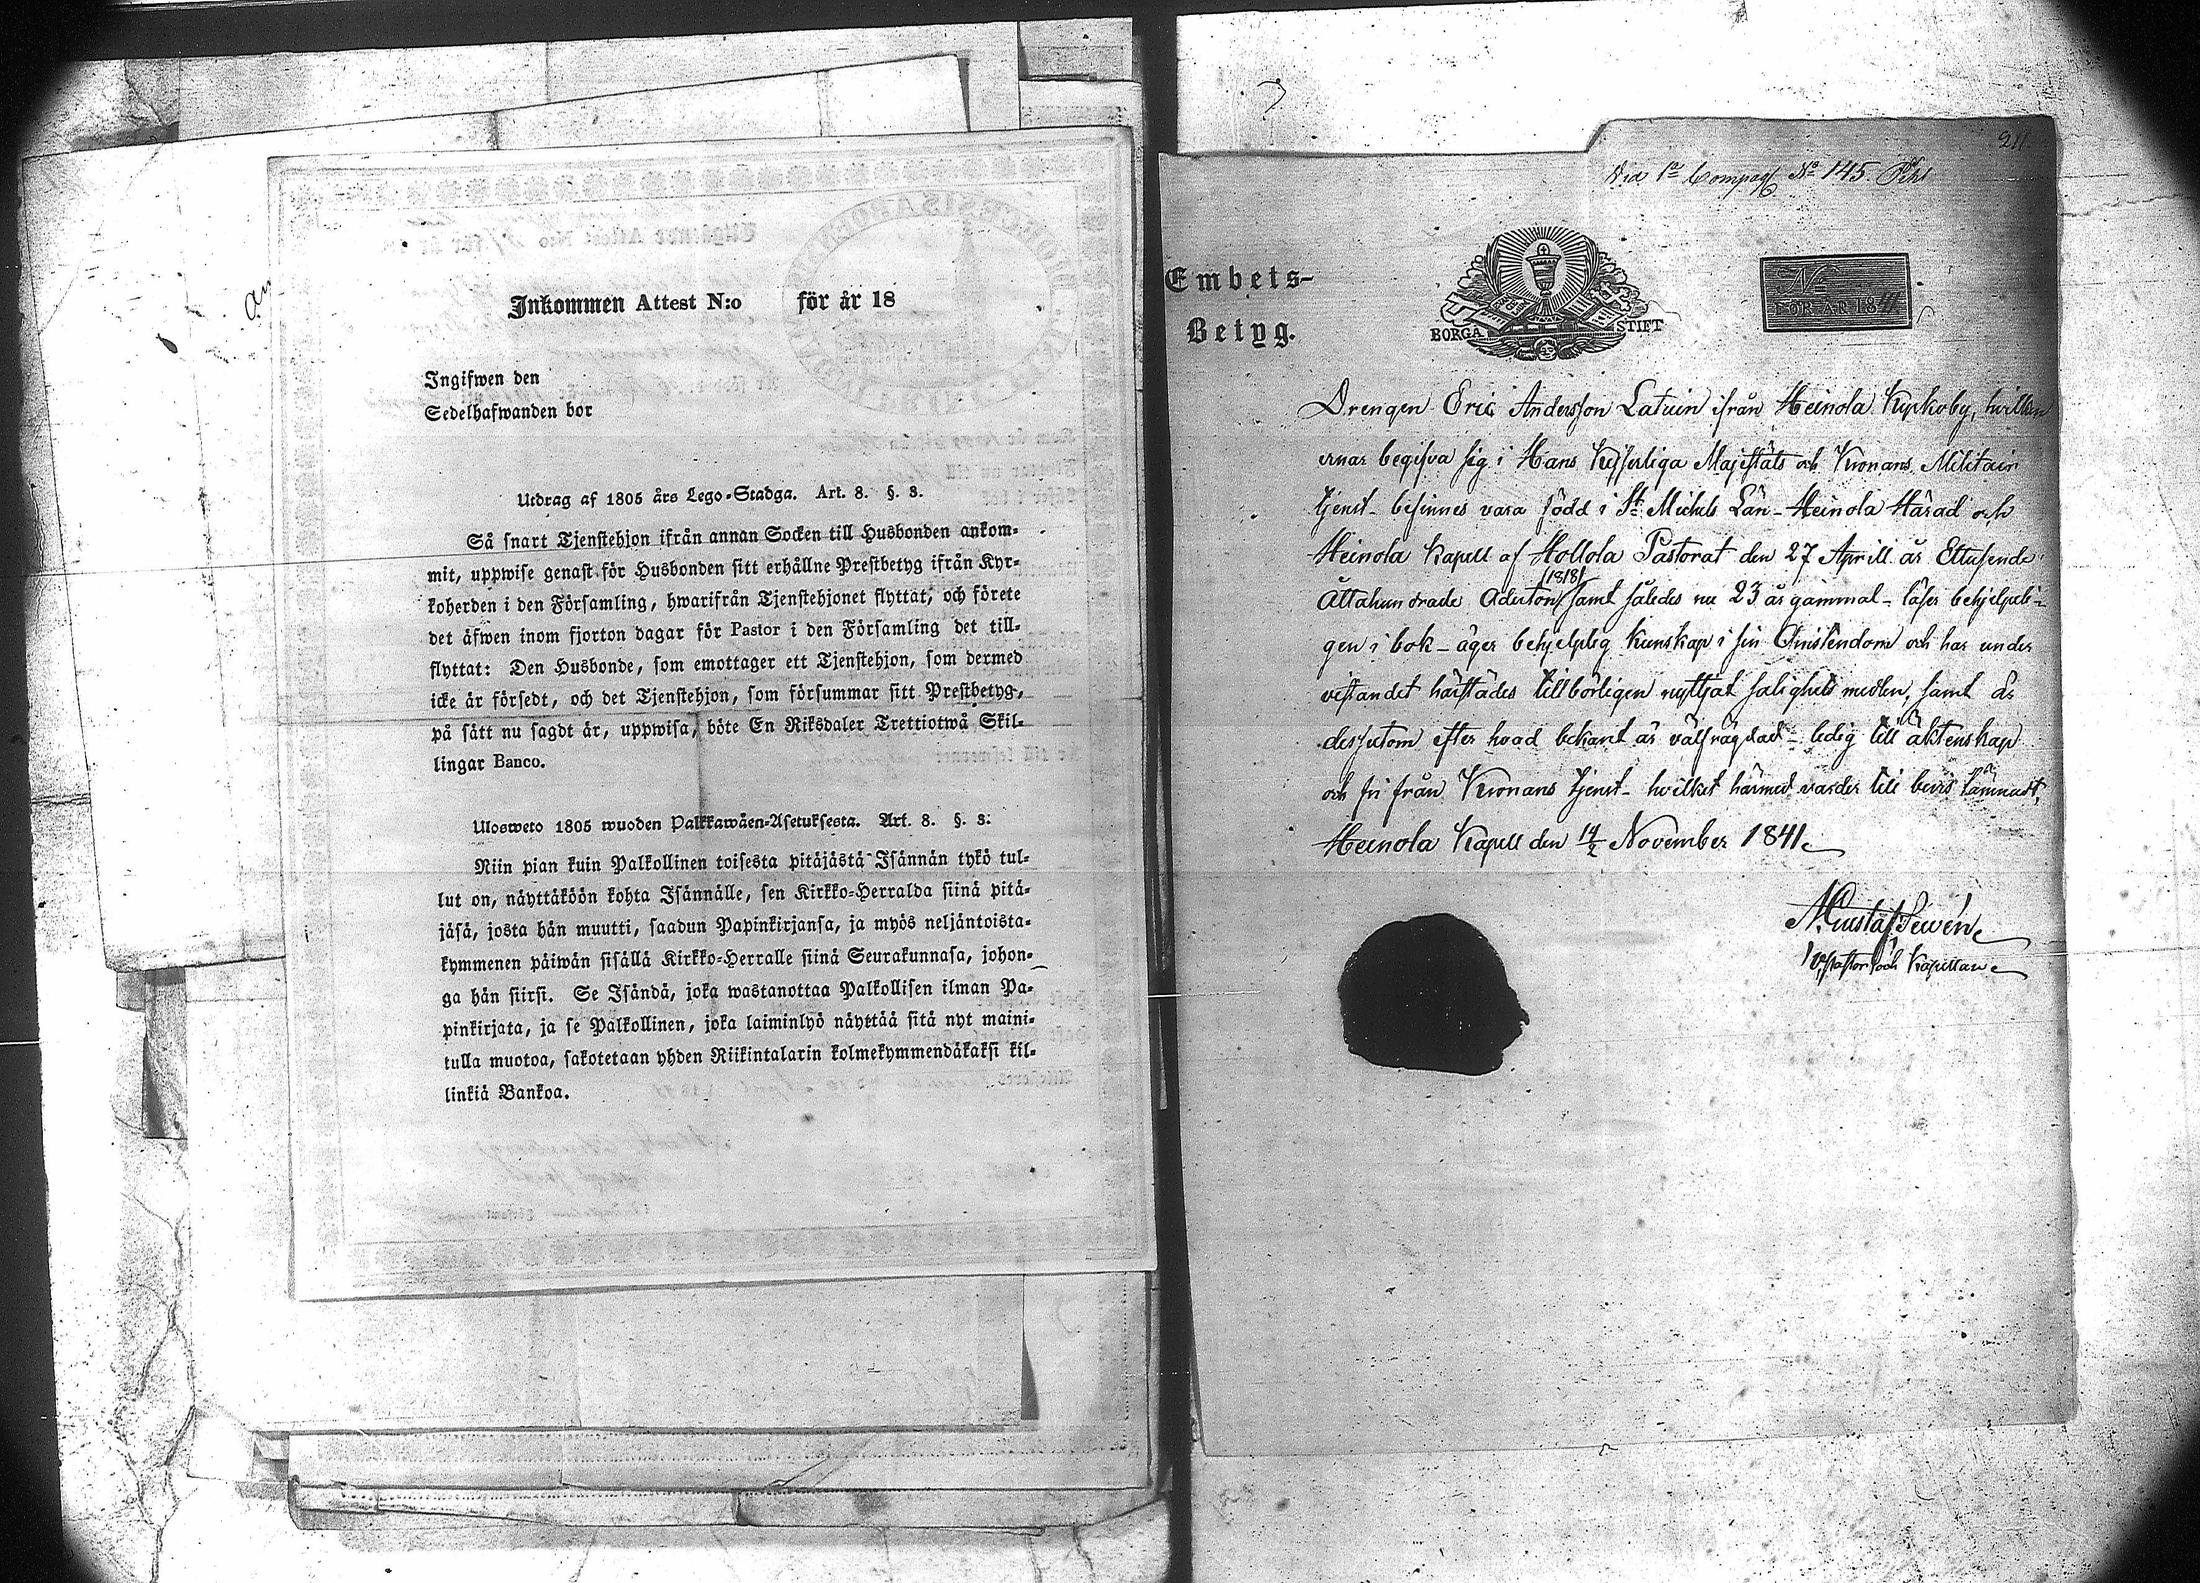 Inkommen Attest N:o för år 18
Ingifwen den
Sedelhafwanden bor
Utdrag af 1805 års Lego-Stadga. Art. 8. §. 3.
Så snart Tjenstehjon ifrån annan Socken till Husbonden ankom-
mit, uppwise genast för Husbonden sitt erhållne Prestbetyg ifrån Kyr-
koherden i den Församling, hwarifrån Tjenstehjonet flyttat, och förete
det äfwen inom fjorton dagar för Pastor i den Församling det till-
flyttat: Den Husbonde, som emottager ett Tjenstehjon, som dermed
icke är försedt, och det Tjenstehjon, som försummar sitt Prestbetyg,
på sätt nu sagdt är, uppwisa, böte En Riksdaler Trettiotwå Skil-
lingar Banco.
Ulosweto 1805 wuoden Palkkawäen-Asetuksesta. Art. 8. §. 3.
Niin pian kuin Palkollinen toisesta pitäjästä Isännän tykö tul-
lut on, näyttäköön kohta Isännälle, sen Kirkko-Herralda siinä pitä-
jäsä, josta hän muutti, saadun Papinkirjansa, ja myös neljäntoista-
kymmenen päiwän sisällä Kirkko-Herralle siinä Seurakunnasa, johon-
ga hän siirsi. Se Isändä, joka wastanottaa Palkollisen ilman Pa-
pinkirjata, ja se Palkollinen, joka laiminlyö näyttää sitä nyt maini-
tulla muotoa, sakotetaan yhden Riikintalarin kolmekymmendäkaksi kil-
linkiä Bankoa.
211
Vid 1ª Compag N° 145.
Embets-
Betyg.
BORGÅ STIFT
N°
FÖR ÅR 1841
Drengen Eric Andersson Latuin ifrån Heinola Kyrkoby, hvilken
ernar begifva sig i Hans Kejserliga Majestäts och Kronans Militair
tjenst - befinnes vara född i St Michels Län - Heinola Härad och
Heinola Kapell af Hollola Pastorat den 27 Aprill år Ettusende
Åttahundrade Aderton (1818) samt således nu 23 år gammal - läser behjelpli-
gen i bok - äger behjelplig kunskap i sin Christendom och har under
vistandet härstädes tillbörligen nyttjat salighets medlen, samt är
dessutom efter hvad bekant är välfrägdad - ledig till äktenskap
och fri från Kronans tjenst - hvilket härmed varder till bevis lämnadt,
Heinola Kapell den 14/2 November 1841.
N. Gustaf Sewén
V. Pastor och Kapellan